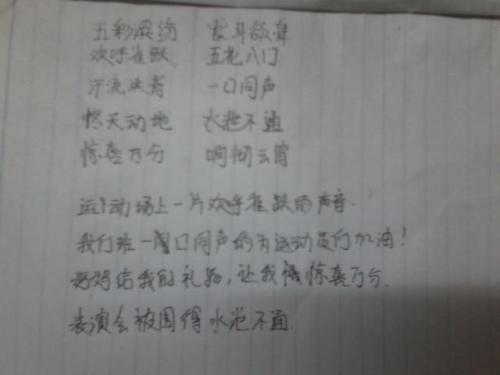 五彩缤纷 震耳欲聋
欢呼雀跃 五花八门
汗流浃背 一口同声
惊天动地 水泄不通
惊喜万分 响彻云霄
运动场上一片欢呼雀跃的声音.
我们班一口同声的为运动员们加油!
妈妈给我的礼物,让我惊喜万分.
表演会被围得水泄不通.